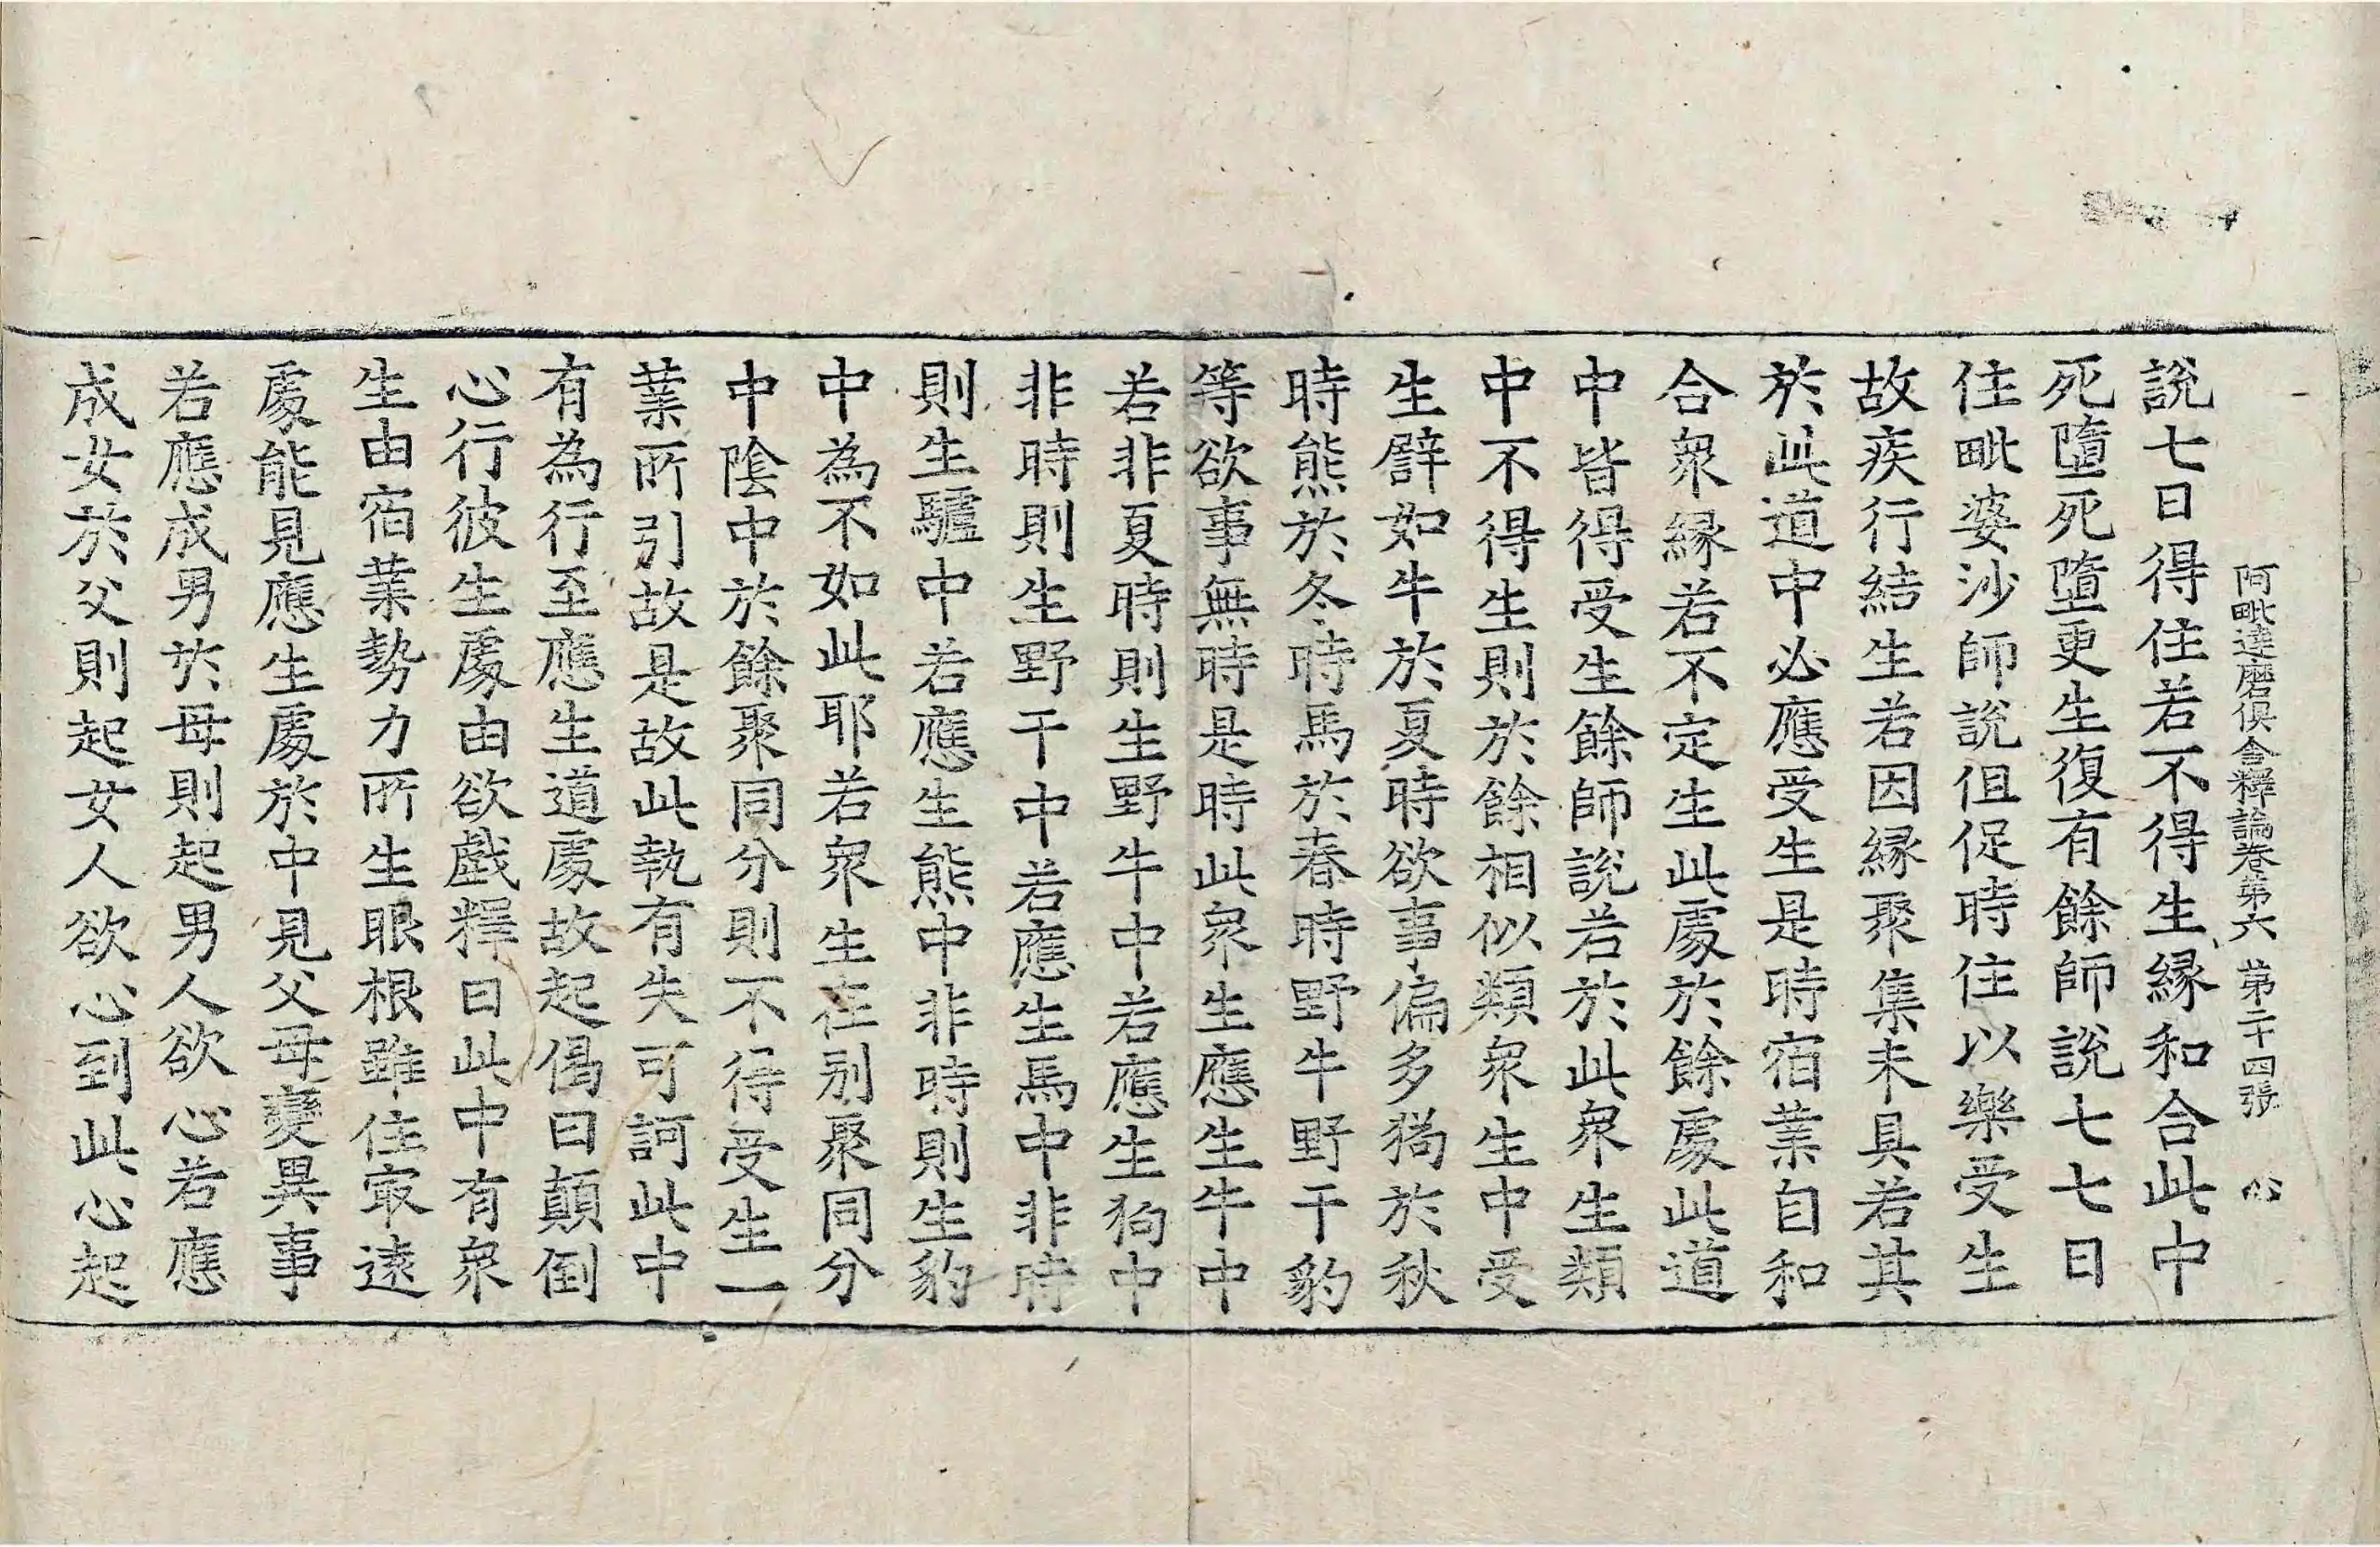 阿毗達磨俱舍釋論卷第六 第二十四張 心
說七日得住若不得生緣和合此中
死墮死墮更生復有餘師說七七日
住毗婆沙師說但促時住以樂受生
故疾行結生若因緣聚集未具若其
於此道中必應受生是時宿業自和
合衆緣若不定生此處於餘處此道
中皆得受生餘師說若於此衆生類
中不得生則於餘相似類衆生中受
生譬如牛於夏時欲事偏多猫於秋
時熊於冬時馬於春時野牛野干豹
等欲事無時是時此衆生應生牛中
若非夏時則生野牛中若應生狗中
非時則生野干中若應生馬中非時
則生驢中若應生熊中非時則生豹
中為不如此耶若衆生在別聚同分
中陰中於餘聚同分則不得受生一
業所引故是故此執有失可訶此中
有為行至應生道處故起偈曰顛倒
心行彼生處由欲戲釋曰此中有衆
生由宿業勢力所生眼根雖住㝡遠
處能見應生處於中見父母變異事
若應成男於母則起男人欲心若應
成女於父則起女人欲心到此心起